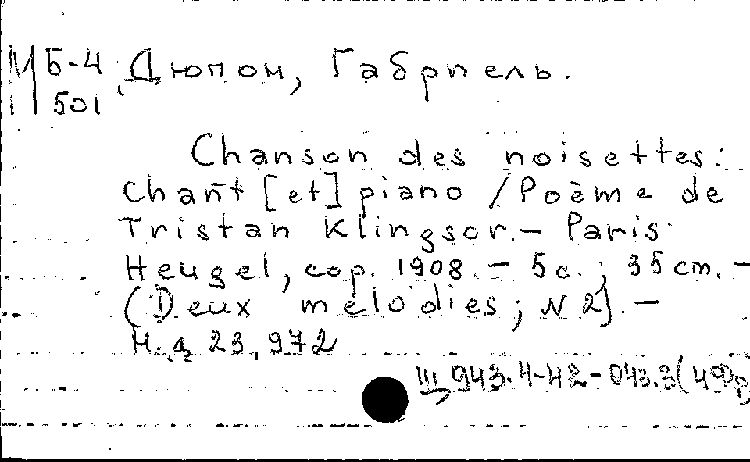 М Б-4 Дюпон, Габриель.
501
Chanson des noisettes:
chant [et] piano / Poème de
Tristan Klingsor. — Paris:
Heugel, cop. 1908. — 5 с.; 35 cm. —
(Deux mélodies; N 2). —
Н. д. 23,972
Щ 943.4-42-043.3(4Фр